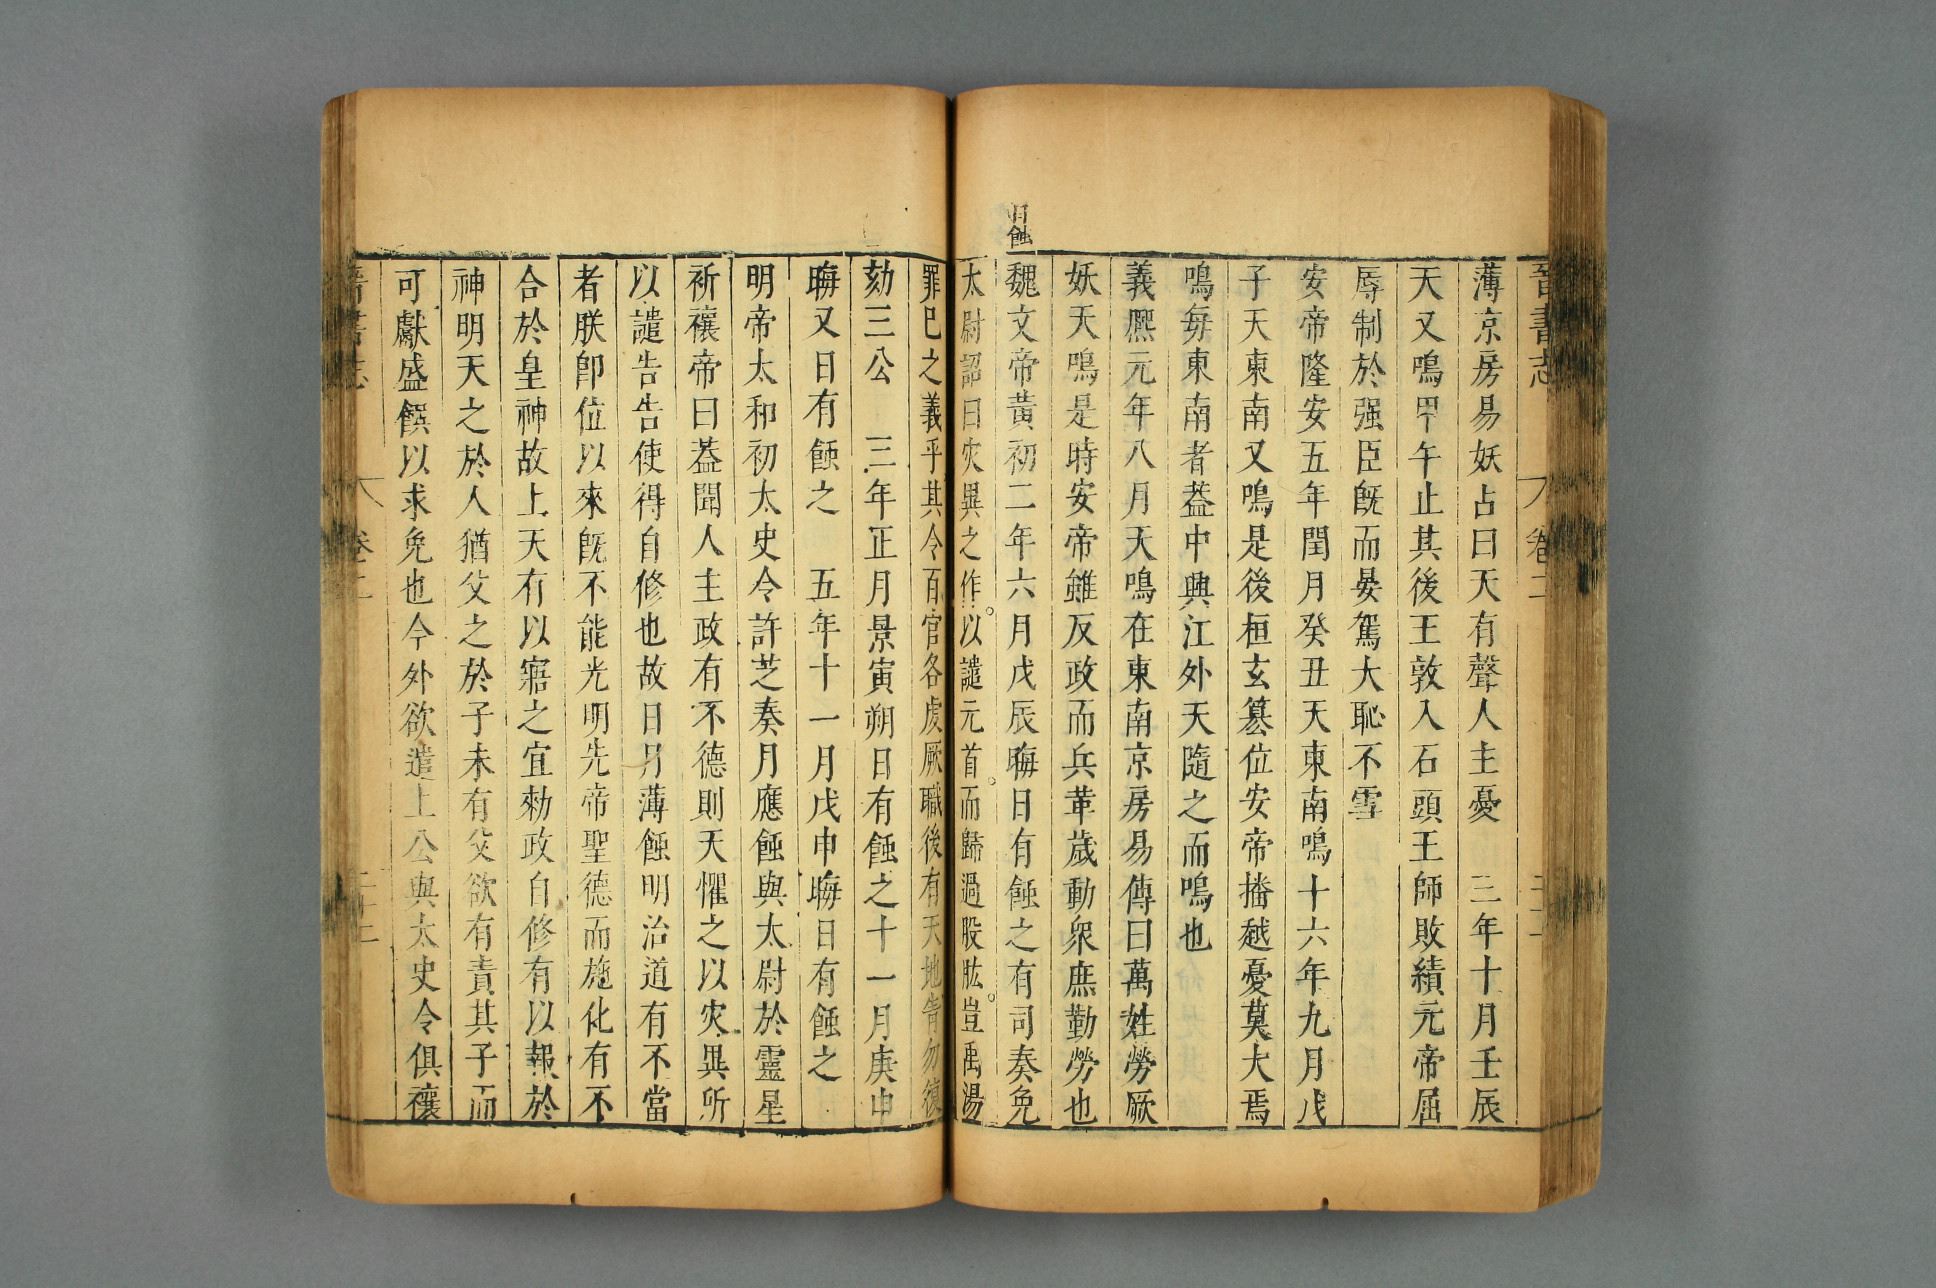 晉書志 卷二
薄京房易妖占曰天有聲人主憂 三年十月壬辰
天又鳴甲午止其後王敦入石頭王師敗績元帝屈
辱制於强臣旣而晏駕大恥不雪
安帝隆安五年閏月癸丑天東南鳴十六年九月戊
子天東南又鳴是後桓玄簒位安帝播越憂莫大焉
鳴每東南者葢中興江外天隨之而鳴也
義熙元年八月天鳴在東南京房易傳曰萬姓勞厥
妖天鳴是時安帝雖反政而兵革歲動衆庶勤勞也
日蝕
魏文帝黃初二年六月戊辰晦日有蝕之有司奏免
太尉詔曰灾異之作。以譴元首。而歸過股肱。豈禹湯
罪已之義乎其令百官各虔厥職後有天地眚勿復
劾三公 三年正月景寅朔日有蝕之十一月庚申
晦又日有蝕之 五年十一月戊申晦日有蝕之
明帝太和初太史令許芝奏月應蝕與太尉於靈星
祈禳帝曰葢聞人主政有不德則天懼之以灾異所
以譴告告使得自修也故日月薄蝕明治道有不當
者朕卽位以來旣不能光明先帝聖德而施化有不
合於皇神故上天有以寤之宜勑政自修有以報於
神明天之於人猶父之於子未有父欲有責其子而
可獻盛饌以求免也今外欲遣上公與太史令俱禳
晉書志 卷二 二十二